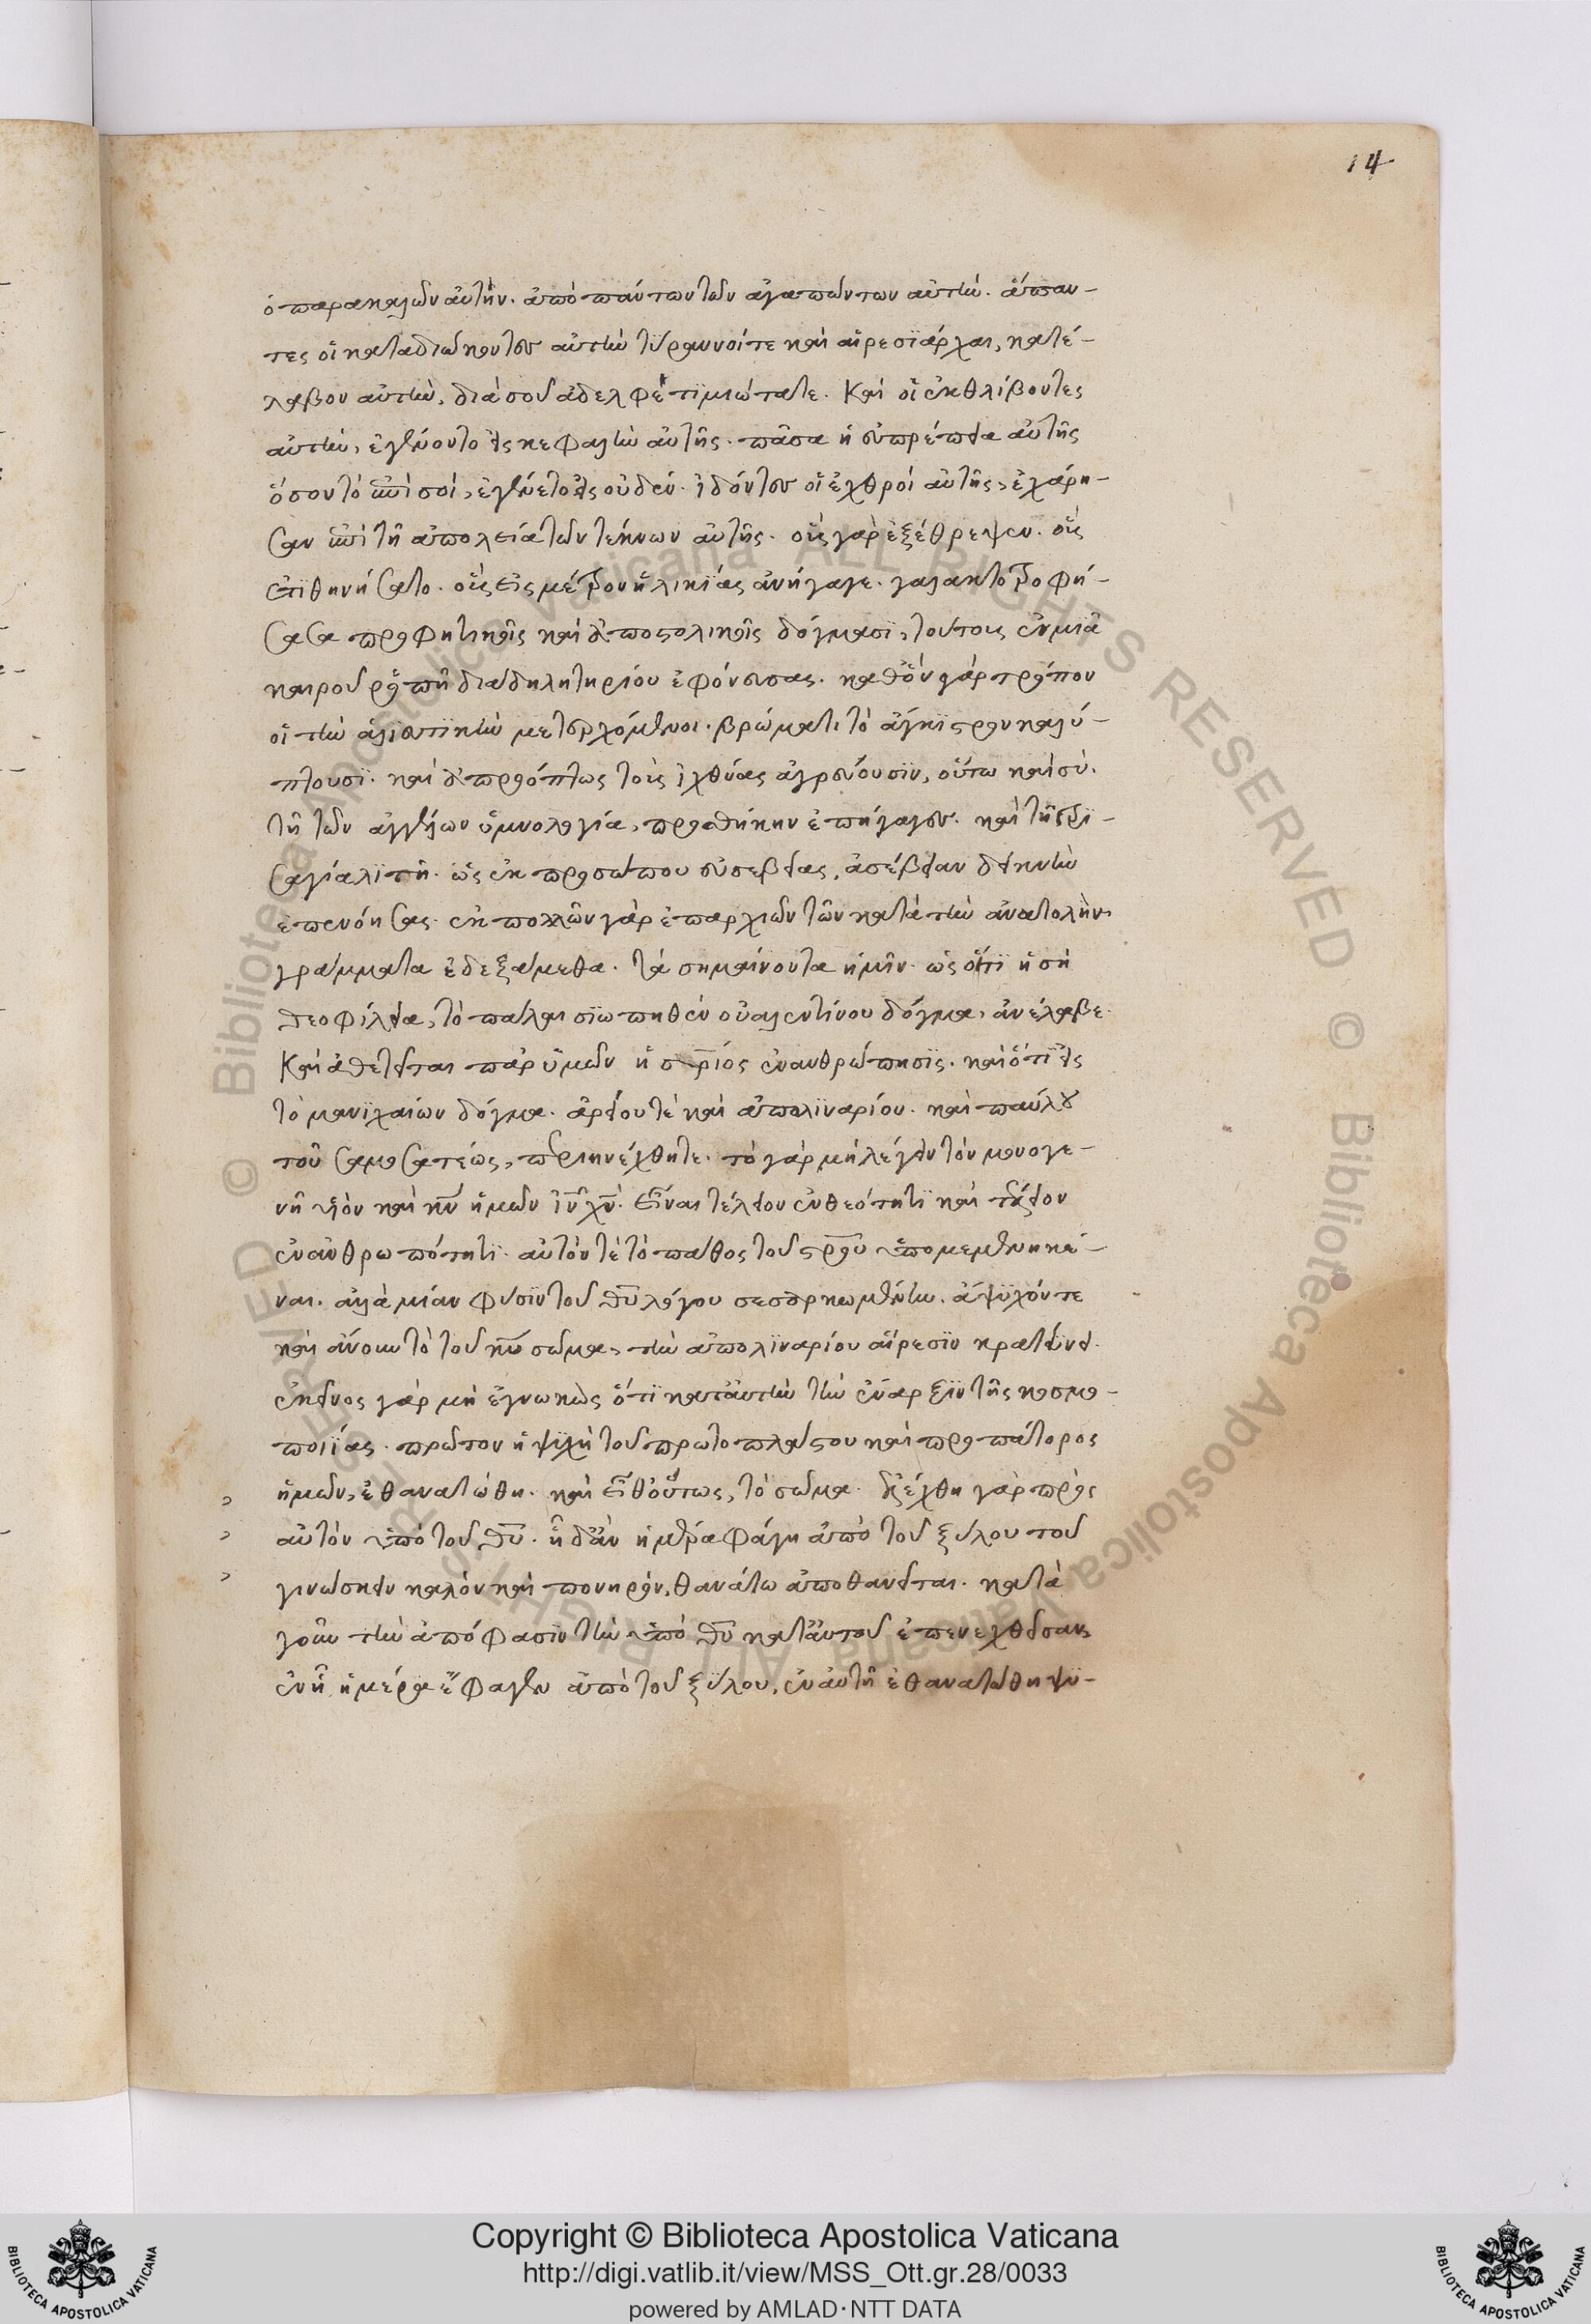 14
ὁ παρακαλῶν αὐτήν. ἀπὸ πάντων τῶν ἀγαπώντων αὐτήν. ἅπαν-
τες οἱ καταδιώκοντες αὐτὴν τύραννοί τε καὶ αἱρεσϊάρχαι, κατέ-
λαβον αὐτὴν, διὰ σοῦ ἀδελφὲ τϊμιώτατε. Καὶ οἱ ἐκθλίβοντες
αὐτὴν, ἐγένοντο εἰς κεφαλὴν αὐτῆς. πᾶσα ἡ εὐπρέπεια αὐτῆς
ὅσον τὸ ἐπὶ σοί, ἐγένετο εἰς οὐδέν. ἰδόντες οἱ ἐχθροί αὐτῆς, ἐχάρη-
σαν ἐπὶ τῇ ἀπολεία τῶν τέκνων αὐτῆς. οὓς γὰρ ἐξέθρεψεν. οὓς
ἐτϊθηνήσατο. οὓς εἰς μέτρον ἡλικίας ἀνήγαγε. γαλακτοτροφή-
σασα προφητικοῖς καὶ ἀποστολικοῖς δόγμασϊ, τούτους ἐν μιᾶ
καιροῦ ῥοπῆ διὰ δηλητηρίου ἐφόνευσας. καθ' ὃν γὰρ τρόπον
οἱ τὴν ἁλιευτϊκὴν μετερχόμενοι. βρώματι τὸ ἄγκϊστρον καλύ-
πτουσϊ. καὶ ἀπρόπτως τοὺς ἰχθύας ἀγρεύουσϊν, οὕτω καὶ σύ.
τῇ τῶν ἀγγέλων ὑμνολογία, προσθήκην ἐπήγαγες. καὶ τῇ τρϊ-
σαγία λϊτῆ. ὡς ἐκ προσώπου εὐσεβείας, ἀσέβειαν δεινὴν
ἐπενόησας. ἐκ πολλῶν γὰρ ἐπαρχιῶν τῶν κατὰ τὴν ἀνατολὴν
γράμματα ἐδεξάμεθα. τὰ σημαίνοντα ἡμῖν. ὡς ὅτϊ ἡ σὴ
θεοφίλεια, τὸ πάλαι σϊωπηθὲν οὐαλεντίνου δόγμα, ἀνέλαβε.
Καὶ ἀθετεῖται παρ' ὑμῶν ἡ σωτήριος ἐνανθρώπησϊς. καὶ ὅτϊ εἰς
τὸ μανϊχαίων δόγμα. ἀρείου τὲ καὶ ἀπολϊναρίου. καὶ παύλου
τοῦ σαμοσατέως, περιηνέχθητε. τὸ γὰρ μὴ λέγειν τὸν μονογε-
νῆ υἱὸν καὶ κν̅ ἡμῶν ἰν̅ χν̅. εἶναι τέλειον ἐν θεότητϊ καὶ τέλειον
ἐν ἀνθρωπότητϊ. αὐτόν τὲ τὸ πάθος τοῦ στρου̅ ὑπομεμενηκέ-
ναι. ἀλλὰ μίαν φύσϊν τοῦ θυ̅ λόγου σεσαρκωμένην. ἄψϋχόν τε
καὶ ἄνουν τὸ τοῦ κυ̅ σῶμα, τὴν ἀπολϊναρίου αἵρεσϊν κρατύνει.
ἐκεῖνος γὰρ μὴ ἐγνωκὼς ὅτϊ κατ' αὐτὴν τὴν ἔναρξϊν τῆς κοσμο-
ποιΐας. πρῶτον ἡ ψϋχὴ τοῦ πρωτοπλάστου καὶ προπάτορος
ἡμῶν, ἐθανατώθη. καὶ εἶθ' οὕτως, τὸ σῶμα. ἐλέχθη γὰρ πρὸς
αὐτὸν ὑπὸ τοῦ θυ̅. ᾗ δ' ἂν ἡμέρα φάγη ἀπὸ τοῦ ξύλου τοῦ
γινώσκειν καλὸν καὶ πονηρὸν, θανάτω ἀποθανεῖται. κατὰ
γοῦν τὴν ἀπόφασιν τὴν ὑπὸ θυ̅ κατ' αὐτοῦ ἐπενεχθεῖσαν,
ἐν ᾗ ἡμέρα ἔφαγεν ἀπὸ τοῦ ξύλου, ἐν αὐτῇ ἐθανατώθη ψυ-
Copyright © Biblioteca Apostolica Vaticana
http://digi.vatlib.it/view/MSS_Ott.gr.28/0033
powered by AMLAD·NTT DATA